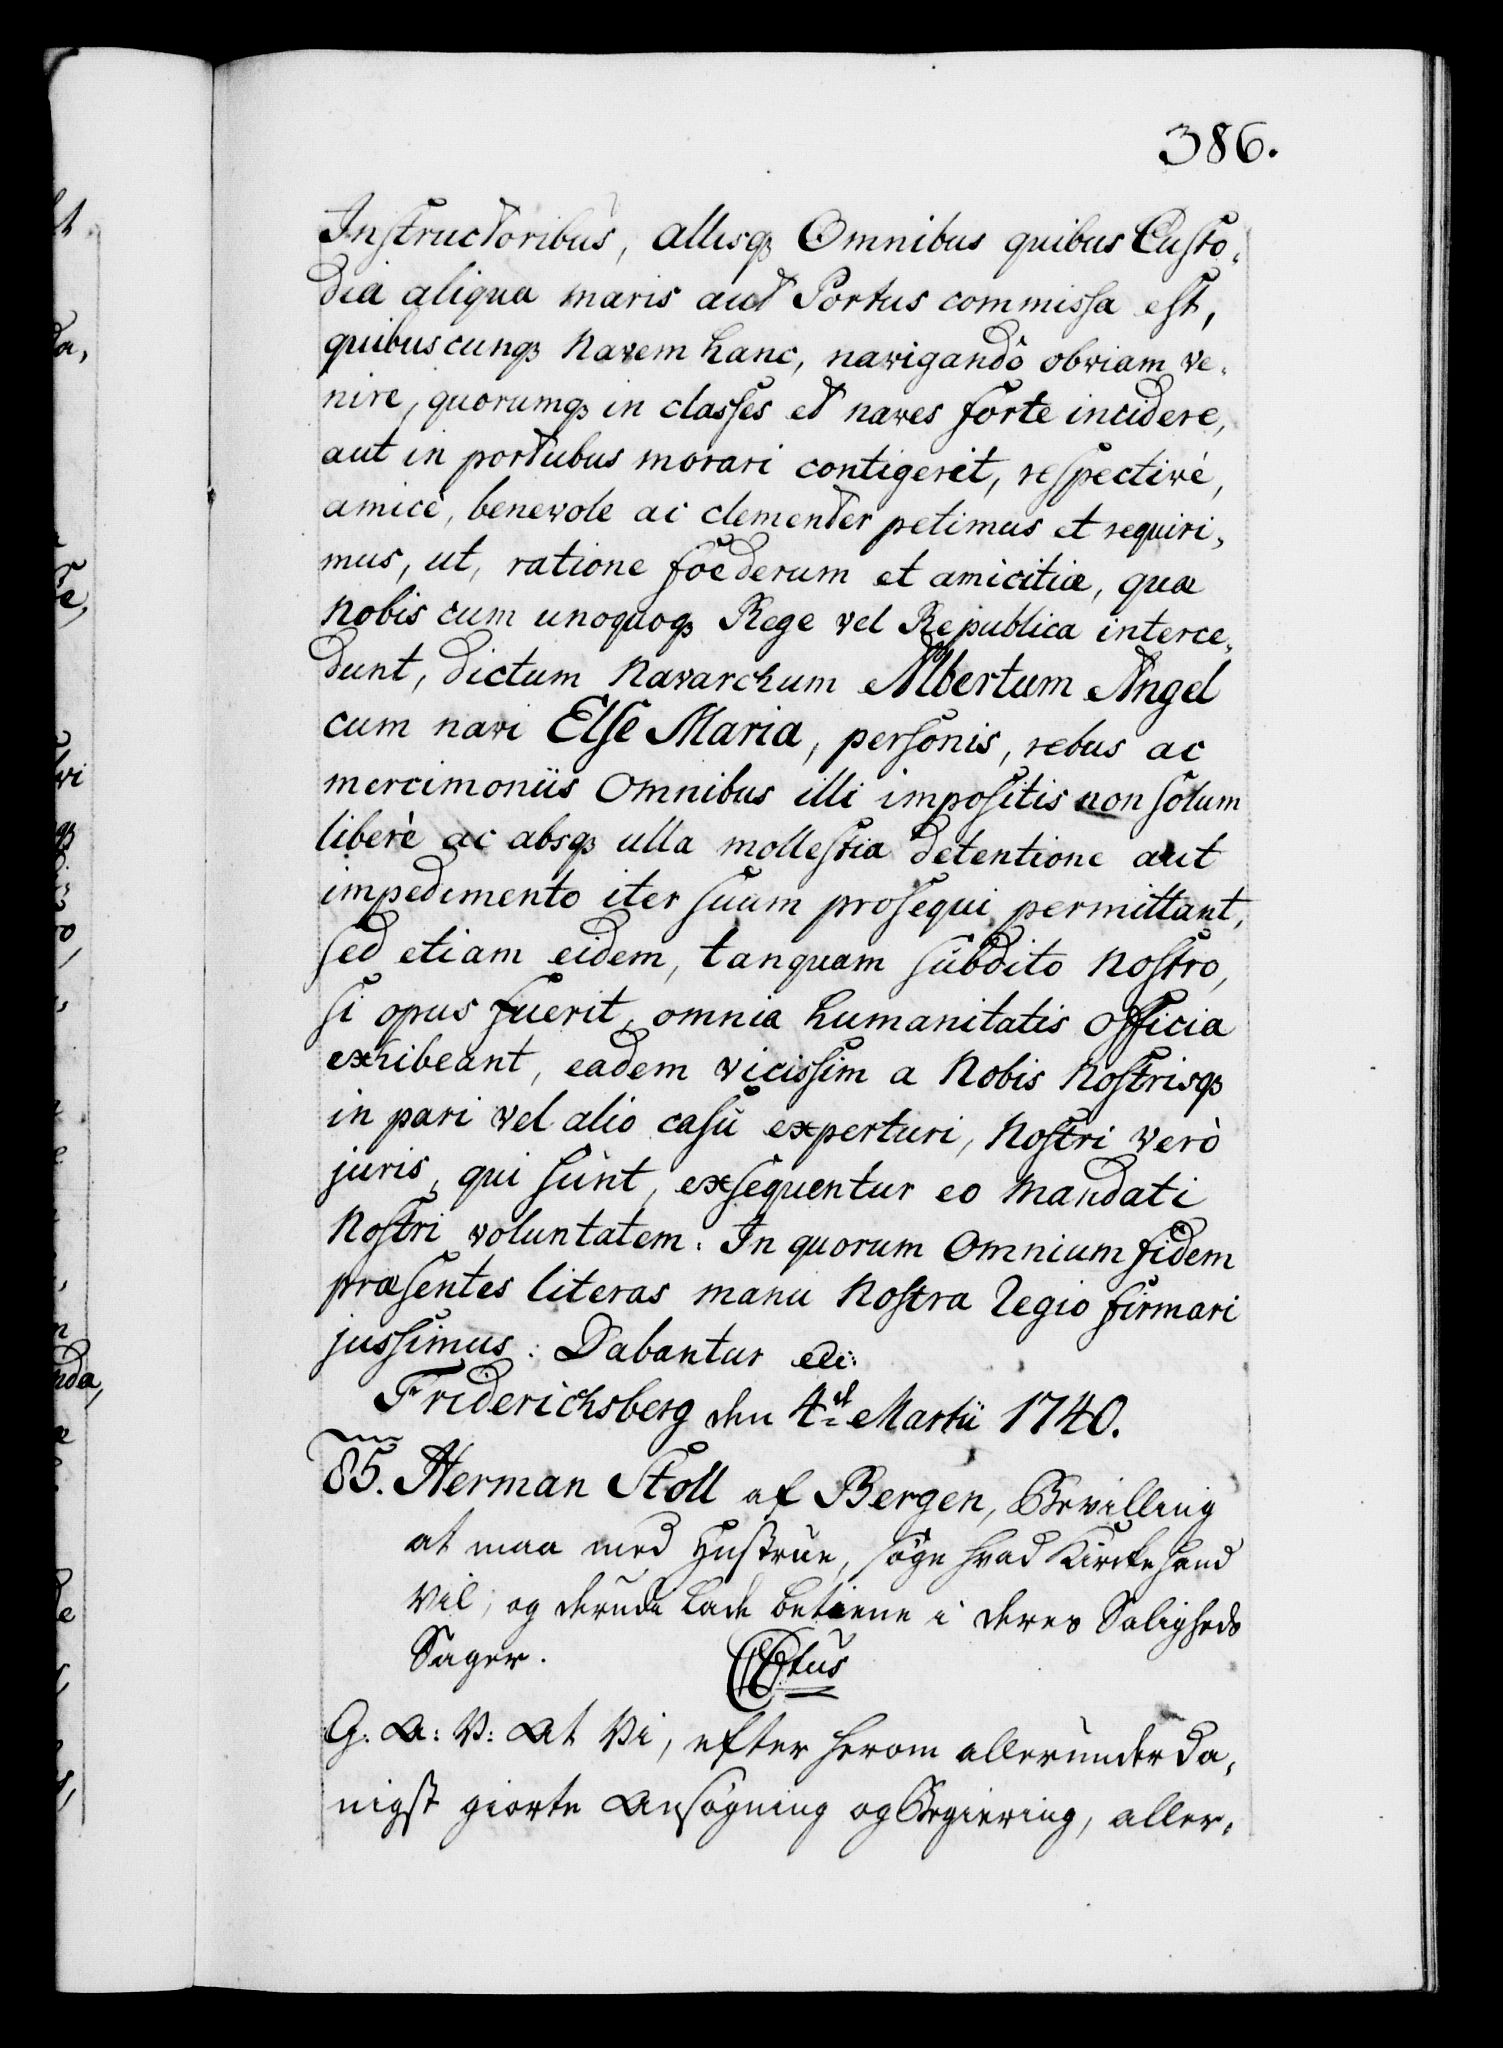 386.
Instructoribus, allisq3 Omnibus quibus Custo,
dia aliqua maris aut Portus commissa est,
quibuscunq3 Navem hanc, navigandô obviam ve,
nire, quorumq3 in classes et naves forte incidere,
aut in portubus morari contigerit, respectivé,
amicè, benevole ac clementer petimus et requiri,
mus, ut, ratione foederum et amicitiæ, quæ
Nobis cum unoquoq3 Rege vel Republica interce,
dunt, dictum Navarchum Albertum Angel
cum navi Else Maria, personis, rebus ac
mercimoniis Omnibus illi impositis non solum
liberè ac absq3 ulla mollestia detentione aut
impedimento iter suum prosequi permittant,
sed etiam eidem, tanquam subdito Nostro,
si opus fuerit, omnia humanitatis officia
exhibeant, eadem vicissim a Nobis Nostrisq3
in pari vel alio casu experturi, Nostri verò
juris, qui sunt, exsequentur eo Mandati
Nostri voluntatem. In quorum Omnium fidem
præsentes literas manu Nostra Regio firmari
jussimus: Dabantur etc:
Friderichsberg den 4de Martii 1740.
85. Herman Stoll af Bergen, Bevilling
at maa med Hustrue, søge hvad Kircke hand
vil, og derudi lade betiene i deres Saligheds
Sager.
G: A: V: At Vi, efter herom allerunderda,
nigst giorte Ansøgning og Begiering, aller,